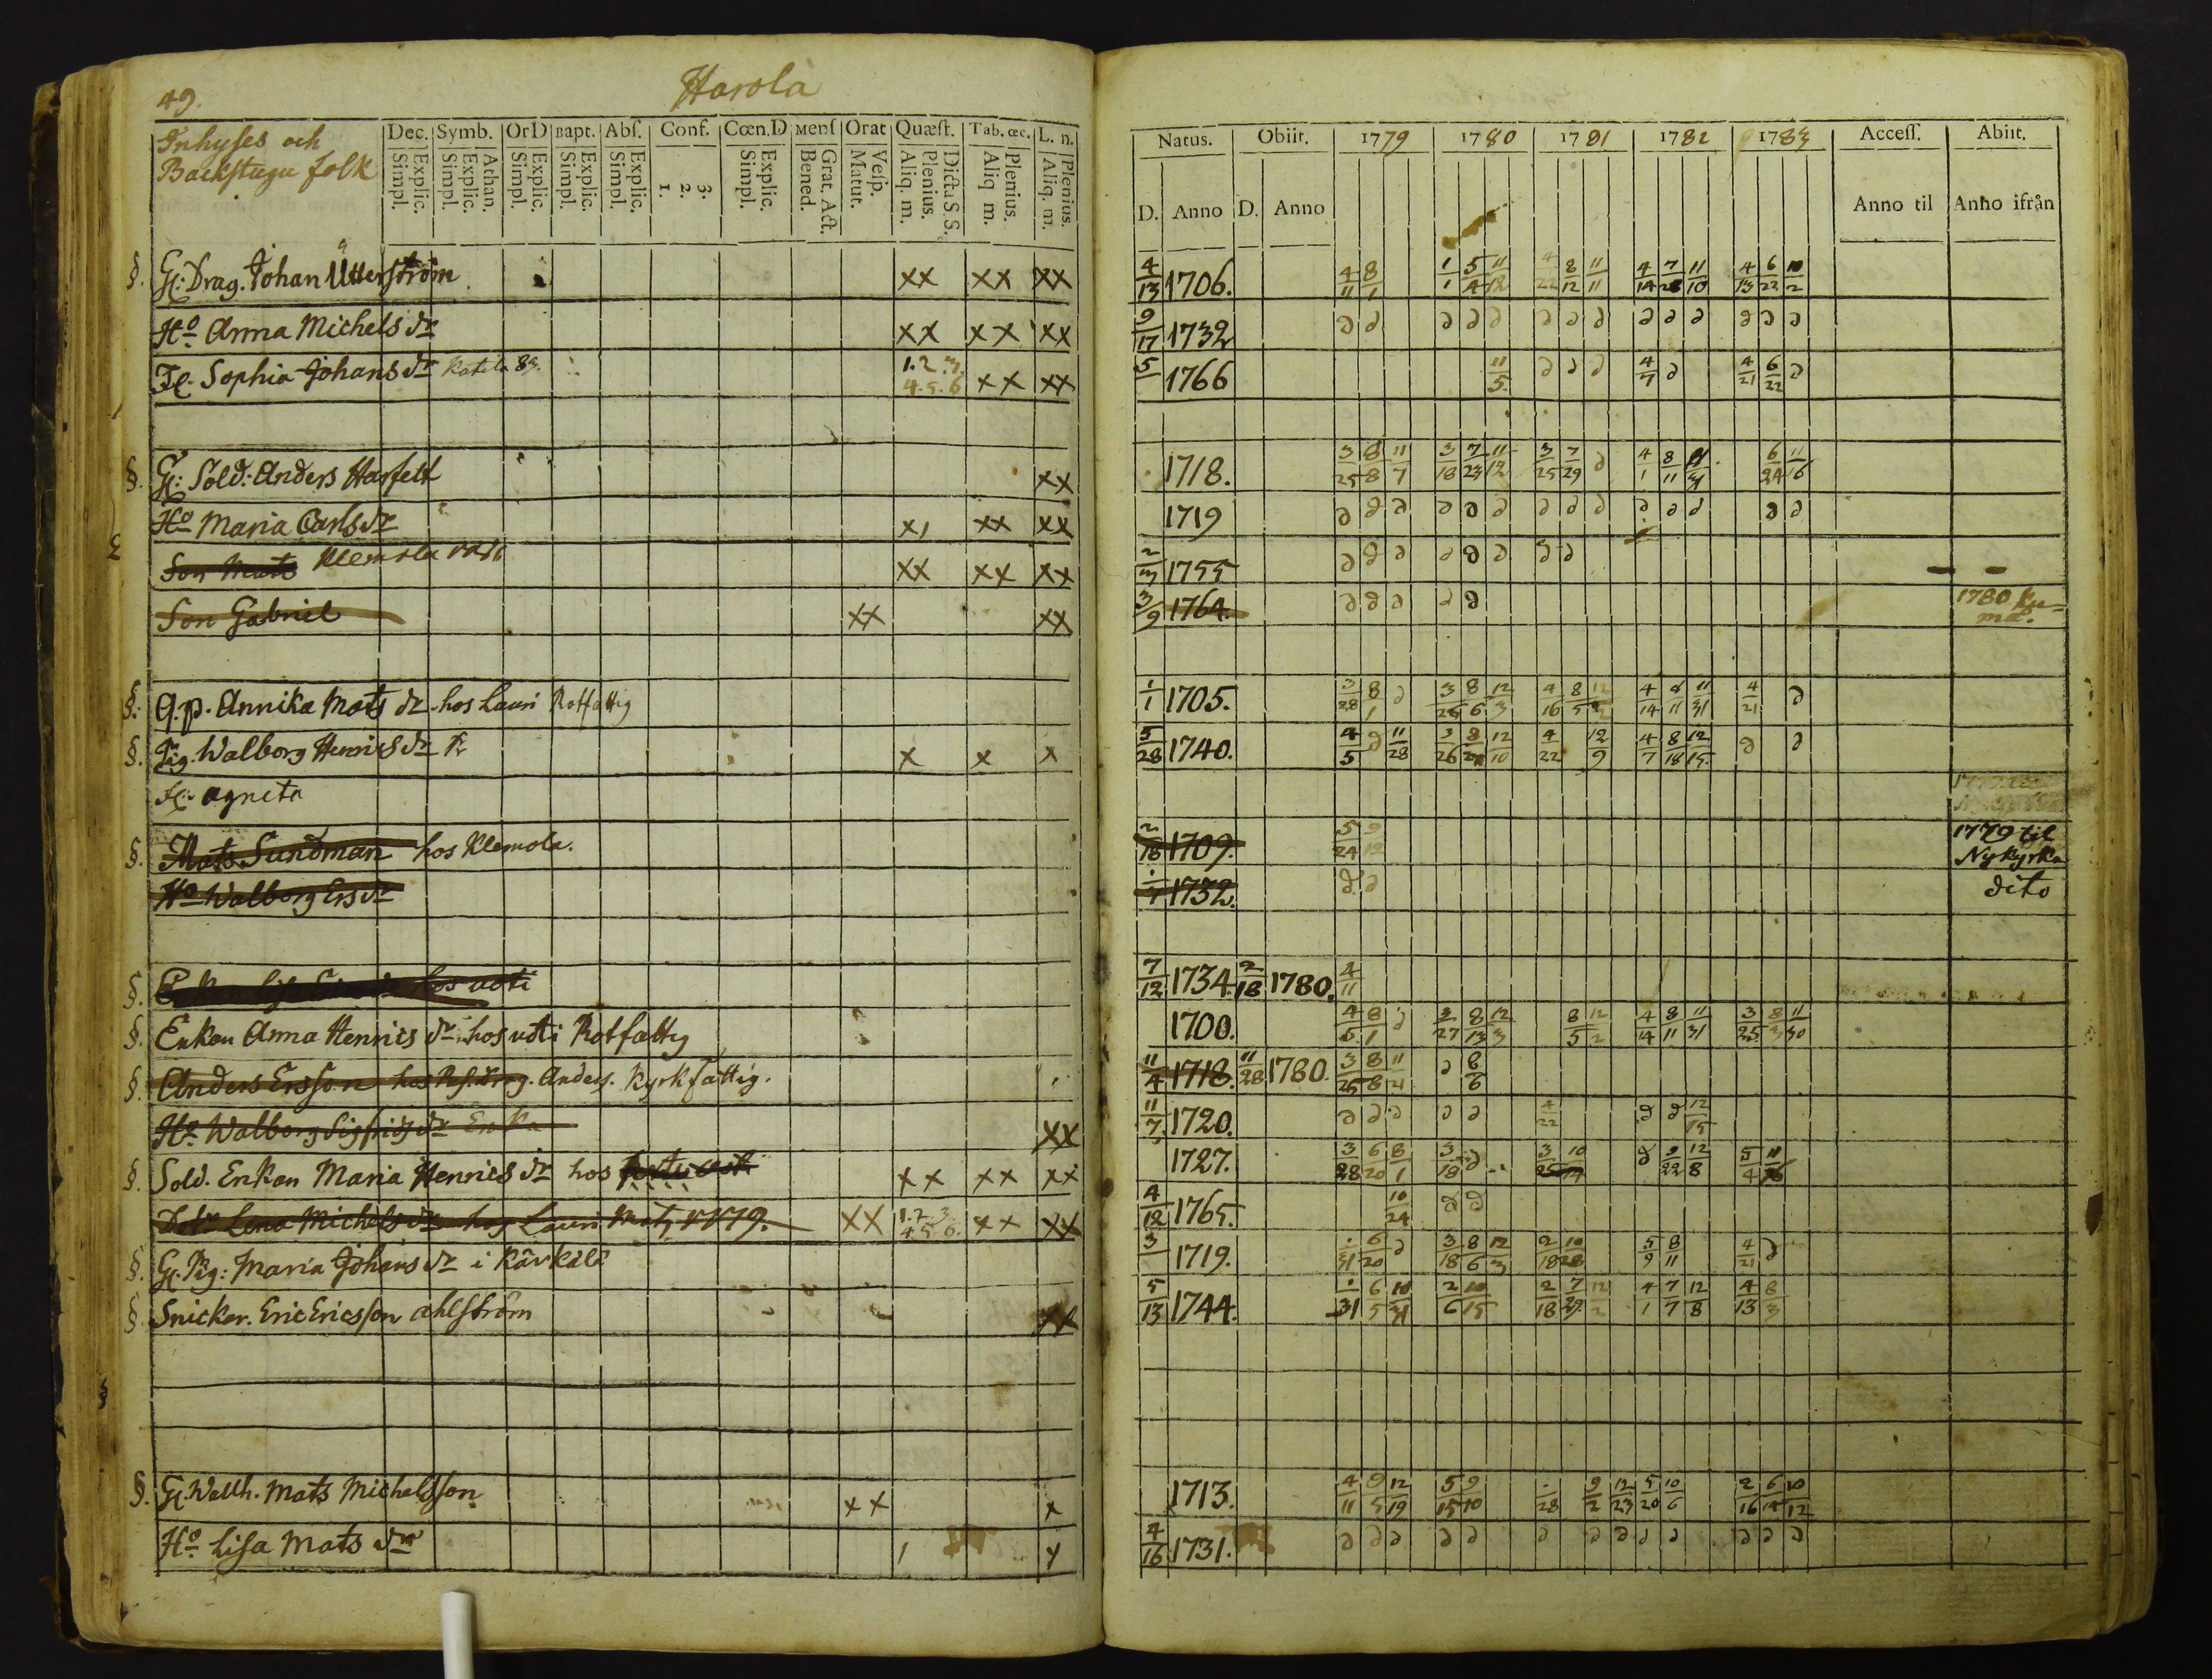 49.
Harola
Inhyses och
Backstugu folk
Dec. Symb. OrD Bapt. Abs. Conf. Cœn.D Mens Orat Quæst. Tab. œc. L. n.
Explic. Simpl. Athan. Explic. Simpl. Explic. Simpl. Explic. Simpl. Explic. Simpl. 3. 2. 1. Explic. Simpl. Grat. Act. Bened. Vesp. Matut. Dicta S. S. Plenius. Aliq. m. Plenius. Aliq m. Plenius. Aliq. m.
Natus. Obiit. 1779 1780 1781 1782 1783 Access. Abiit.
D. Anno D. Anno Anno til Anno ifrån
§. Gl: Drag. Johan Utterström xx xx xx 4/13 1706. 4/11 8/1 1/1 5/4 11/12 4/22 8/12 11/11 4/14 7/28 11/10 4/13 6/22 10/2
Ho Anna Michels dr xx xx xx 9/17 1732
Fl. Sophia Johans dr Katila 83. 1. 2. 3. 4. 5. 6 xx xx 5/ 1766 11/5 4/7 4/21 6/22
§. Gl: Sold: Anders Harfelt xx 1718. 3/25 8/8 11/7 3/18 7/23 11/12 3/25 7/29 4/1 8/11 6/24 11/16
Ho Maria Carls dr x1 xx xx 1719
Son Mats Klemola xx xx xx 2/3 1755
Son Gabriel xx xx 3/9 1764. 1780 Ku=
ma.
§. Q. p. Annika Mats dr hos Lauri Rotfattig 1/1 1705. 3/28 8/1 3/26 8/6 12/3 4/16 8/5 12/2 4/14 11/31 4/21
§. Pig. Walborg Henrics dr x x x 5/28 1740. 4/5 11/28 3/26 12/10 4/22 12/9 4/7 8/18 12/15
Fl: agneta
§. Mats Sundman hos Klemola. 2/18 1709. 5/24 9/12 1779 til
Nykyrka
Ho Walborg Ers dr 1732. dito
§. hos uoti 7/12 1734 2/18 1780. 4/11
§. Enkan Anna Henrics dr hos uoti Rotfattig 1700. 4/5 8/1 3/27 8/13 12/3 8/5 12/2 4/14 8/11 11/31 3/25 8/3 11/30
§. Anders Ersson hos Anders. Kyrkfattig. 11/4 1718. 11/28 1780. 3/25 8/8 11/4 8/6
Ho Walborg Sigfrids dr Enka xx 11/7 1720. 4/22 12/15
§. Sold. Enkan Maria Henrics dr hos xx xx xx 1727. 3/28 6/20 8/1 3/18 3/25 10/14 9/22 12/8 5/4 11/16
Lena Michels dr hos Lauri Mats 1779. xx 1. 2. 3. 4. 5. 6. xx xx 4/12 1765. 10/24
§. Gl. Pig: Maria Johans dr i Kärkälä 3/ 1719. 1/31 6/20 3/18 8/6 12/3 2/18 10/28 5/9 8/11 4/21
§. Snickar. Eric Ericsson Ahlström xx 5/13 1744. 1/31 6/5 10/31 2/6 10/15 2/18 7/29 12/2 4/1 7/7 12/8 4/13 8/3
§. Gl. Mats Michelsson xx x 1713. 4/11 9/5 12/19 5/15 9/10 1/28 9/2 12/23 5/20 10/6 2/16 6/14 10/12
Ho Lisa Mats dr 4/16 1731.